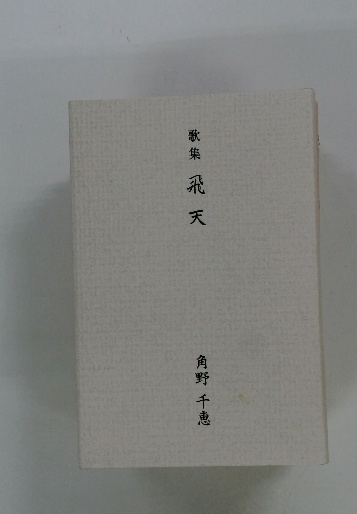 歌集 飛天
角野 千恵